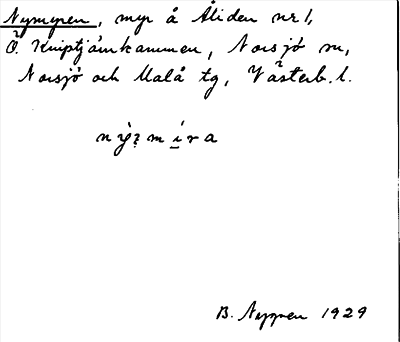 Nymyren, myr å Åliden nr 1,
Ö. Kniptjärnkammen, Norsjö sn,
Norsjö och Malå tg, Västerb. l.
B. Nygren 1929